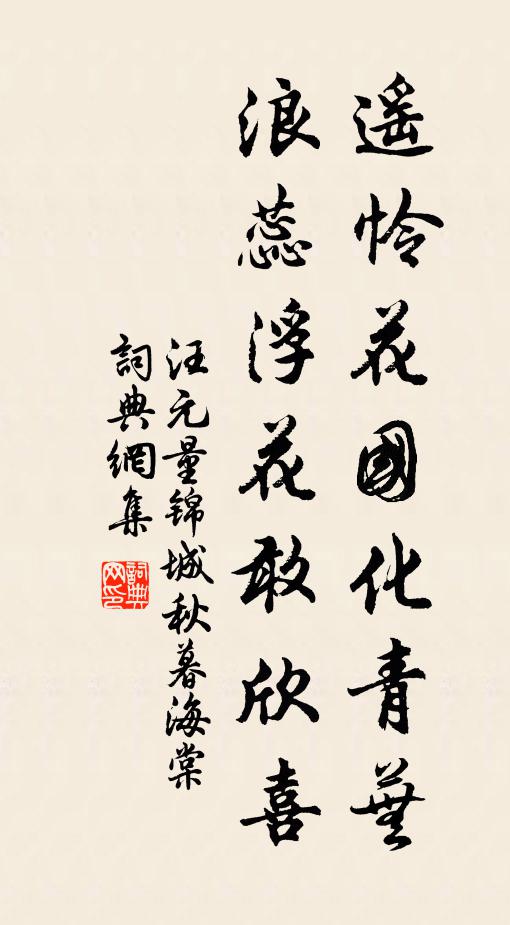 遥怜花國化青蕪
浪蕊浮花敢欣喜
汪元量錦城秋暮海棠
詞典網集
詞典网印